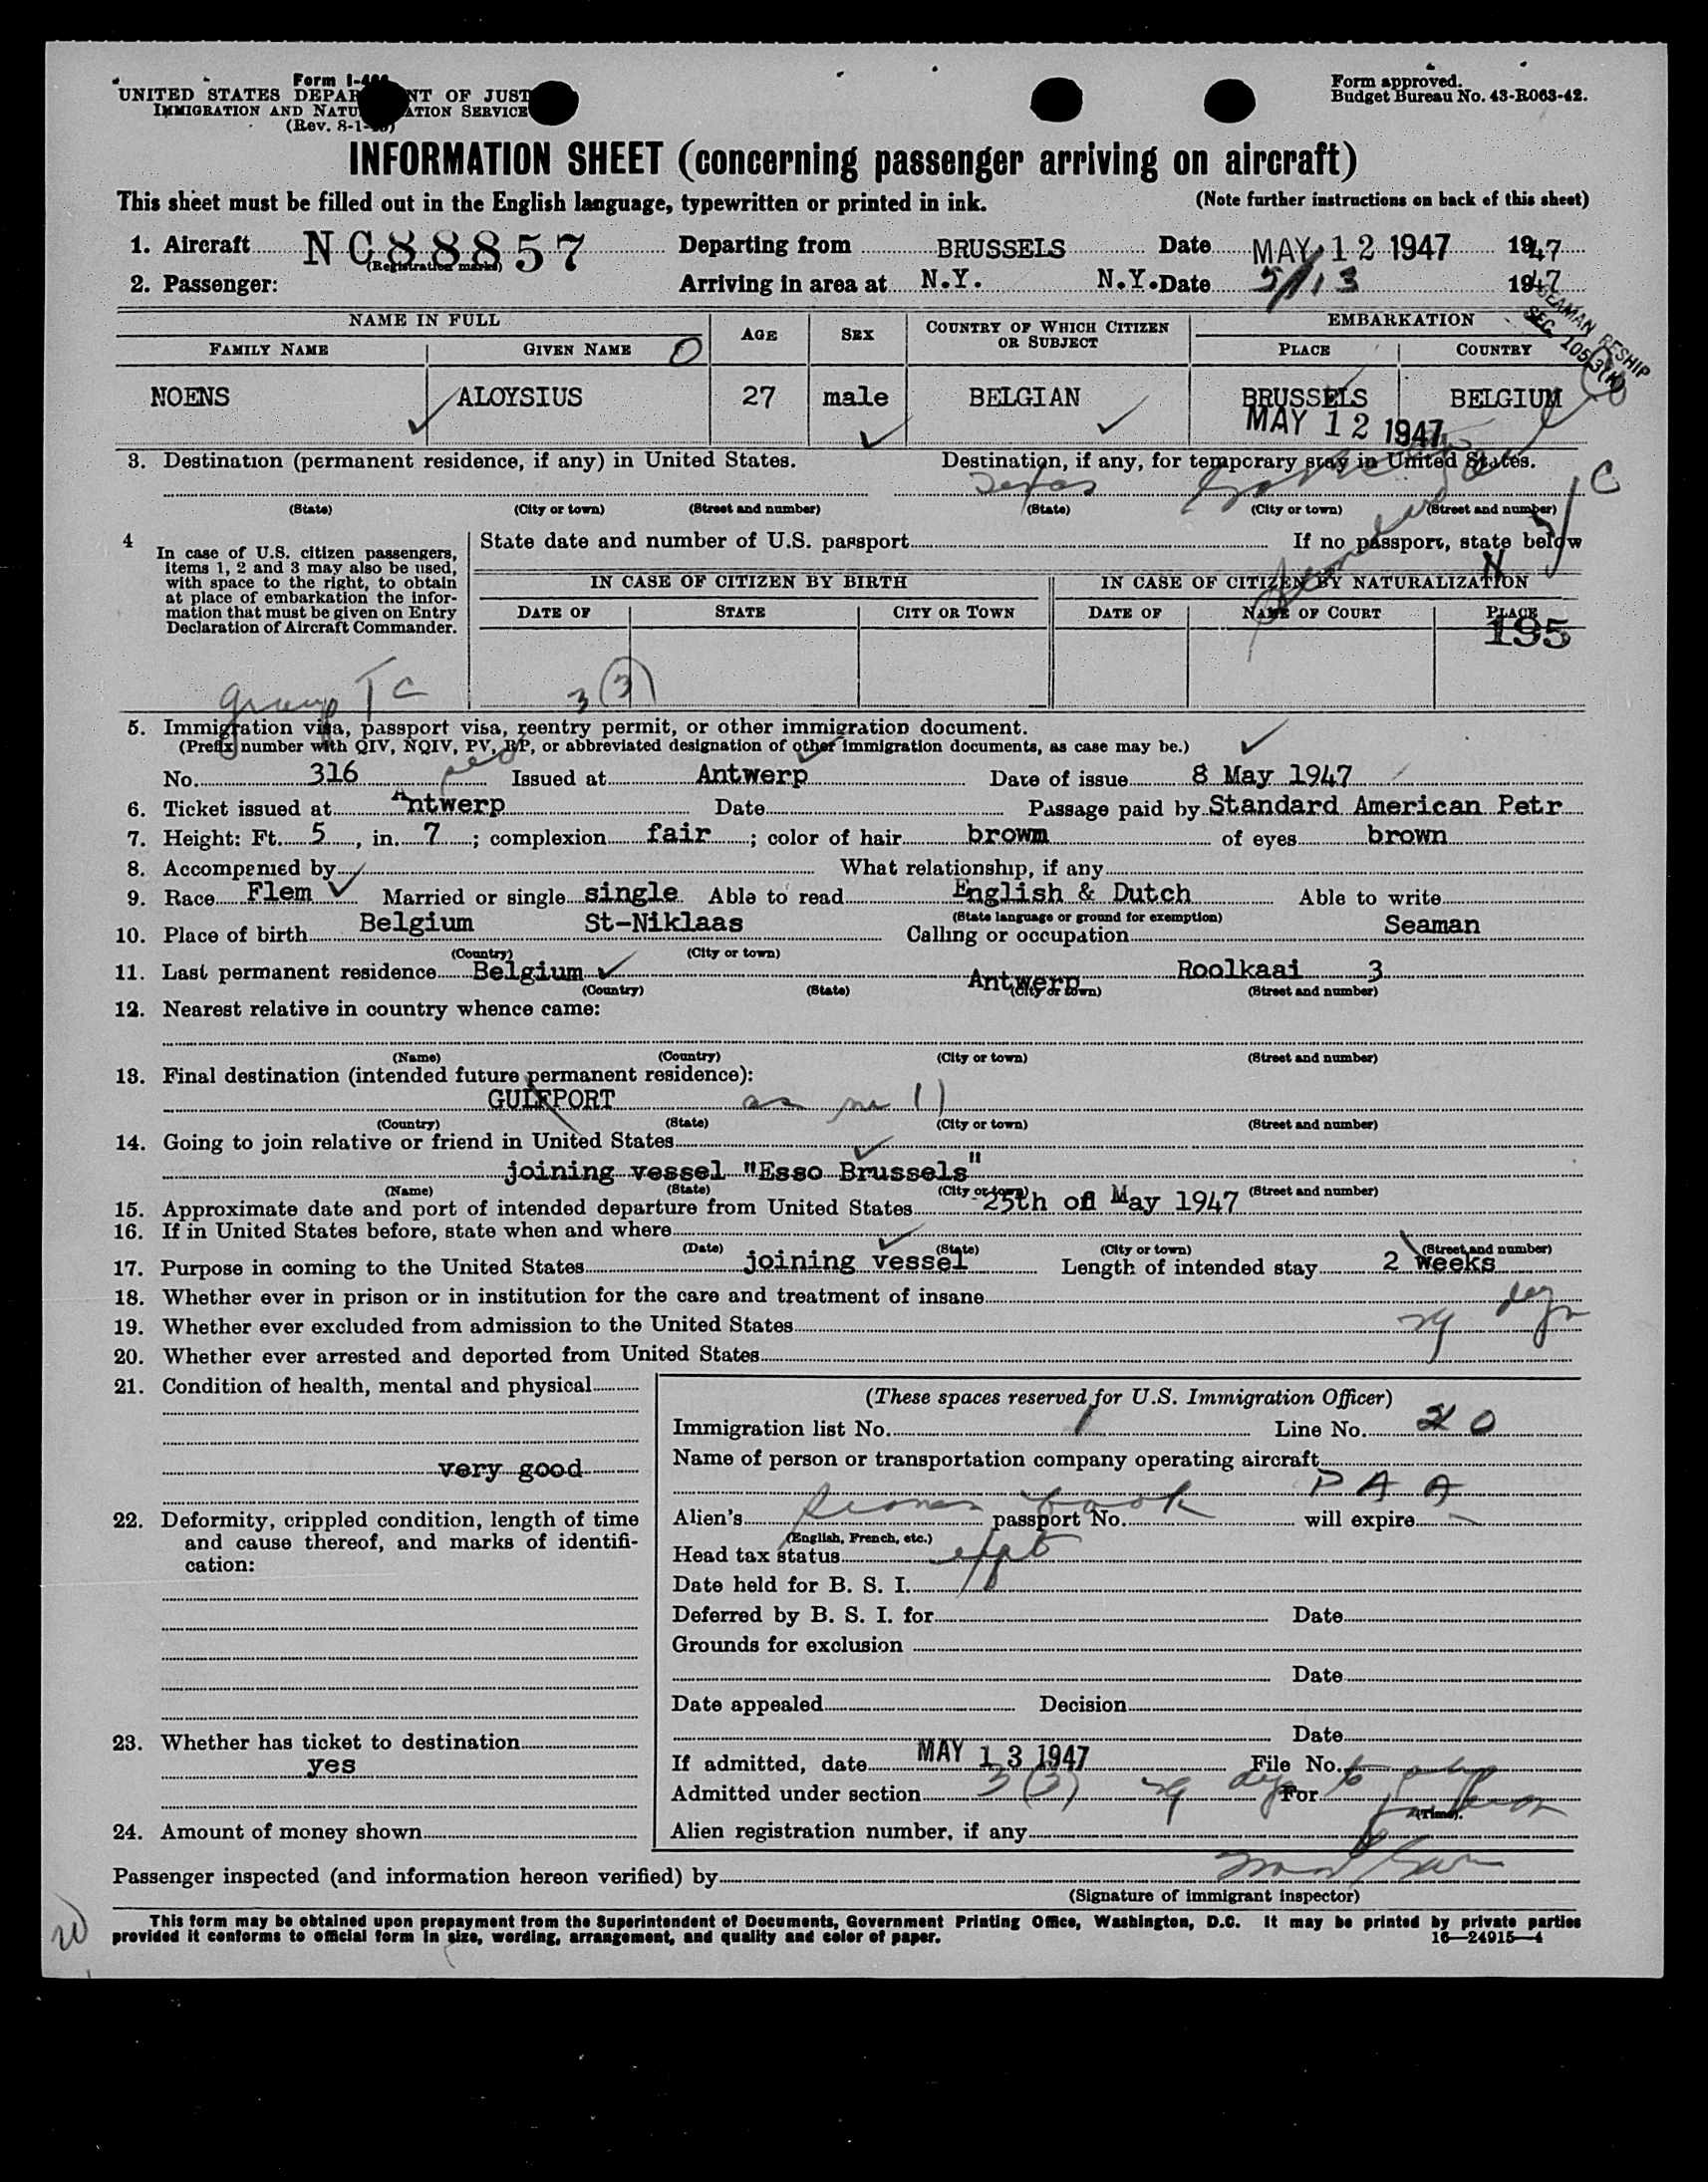 Form I-466
UNITED STATES DEPARTMENT OF JUST
IMMIGRATION AND NATURALIZATION SERVICE
(Rev. 8-1-
Form approved.
Budget Bureau No. 43-R063-42.
INFORMATION SHEET (concerning passenger arriving on aircraft)
This sheet must be filled out in the English language, typewritten or printed in ink. (Note further instructions on back of this sheet)
1. Aircraft NC88857 Departing from BRUSSELS Date MAY 12 1947 1947
(Registration marks)
2. Passenger: Arriving in area at N.Y. N.Y. Date 5/13 1947
SEAMAN RESHIP
SEC 105(3)
NAME IN FULL AGE SEX COUNTRY OF WHICH CITIZEN OR SUBJECT EMBARKATION
FAMILY NAME GIVEN NAME PLACE COUNTRY
NOENS ALOYSIUS 27 male BELGIAN BRUSSELS BELGIUM
MAY 12 1947
3. Destination (permanent residence, if any) in United States. Destination, if any, for temporary stay in United States.
Texas
(State) (City or town) (Street and number) (State) (City or town) (Street and number)
4 In case of U.S. citizen passengers, items 1, 2 and 3 may also be used, with space to the right, to obtain at place of embarkation the information that must be given on Entry Declaration of Aircraft Commander.
State date and number of U.S. passport If no passport, state below
IN CASE OF CITIZEN BY BIRTH IN CASE OF CITIZEN BY NATURALIZATION
DATE OF STATE CITY OR TOWN DATE OF NAME OF COURT PLACE
195
group TC 3(3)
5. Immigration visa, passport visa, reentry permit, or other immigration document.
(Prefix number with QIV, NQIV, PV, RP, or abbreviated designation of other immigration documents, as case may be.)
No. 316 Issued at Antwerp Date of issue 8 May 1947
6. Ticket issued at Antwerp Date Passage paid by Standard American Petr
7. Height: Ft. 5, in. 7; complexion fair; color of hair brown of eyes brown
8. Accompanied by What relationship, if any
9. Race Flem Married or single single Able to read English & Dutch Able to write
(State language or ground for exemption)
10. Place of birth Belgium St-Niklaas Calling or occupation Seaman
(Country) (City or town)
11. Last permanent residence Belgium Antwerp Roolkaai 3
(Country) (State) (City or town) (Street and number)
12. Nearest relative in country whence came:
(Name) (Country) (City or town) (Street and number)
13. Final destination (intended future permanent residence):
GULFPORT as no 11
(Country) (State) (City or town) (Street and number)
14. Going to join relative or friend in United States
joining vessel "Esso Brussels"
(Name) (State) (City or town) (Street and number)
15. Approximate date and port of intended departure from United States 25th of May 1947
16. If in United States before, state when and where
(Date) (State) (City or town) (Street and number)
17. Purpose in coming to the United States joining vessel Length of intended stay 2 weeks
18. Whether ever in prison or in institution for the care and treatment of insane
29 days
19. Whether ever excluded from admission to the United States
20. Whether ever arrested and deported from United States
21. Condition of health, mental and physical
very good
22. Deformity, crippled condition, length of time and cause thereof, and marks of identification:
23. Whether has ticket to destination
yes
24. Amount of money shown
(These spaces reserved for U.S. Immigration Officer)
Immigration list No. 1 Line No. 20
Name of person or transportation company operating aircraft
PAA
Alien's seamans book passport No. will expire
(English, French, etc.)
Head tax status
Date held for B. S. I.
Deferred by B. S. I. for Date
Grounds for exclusion
Date
Date appealed Decision
Date
If admitted, date MAY 13 1947 File No.
Admitted under section 3(3) 29 days to For
(Time).
Alien registration number, if any
Passenger inspected (and information hereon verified) by
(Signature of immigrant inspector)
This form may be obtained upon prepayment from the Superintendent of Documents, Government Printing Office, Washington, D.C. It may be printed by private parties
provided it conforms to official form in size, wording, arrangement, and quality and color of paper. 16—24915-4